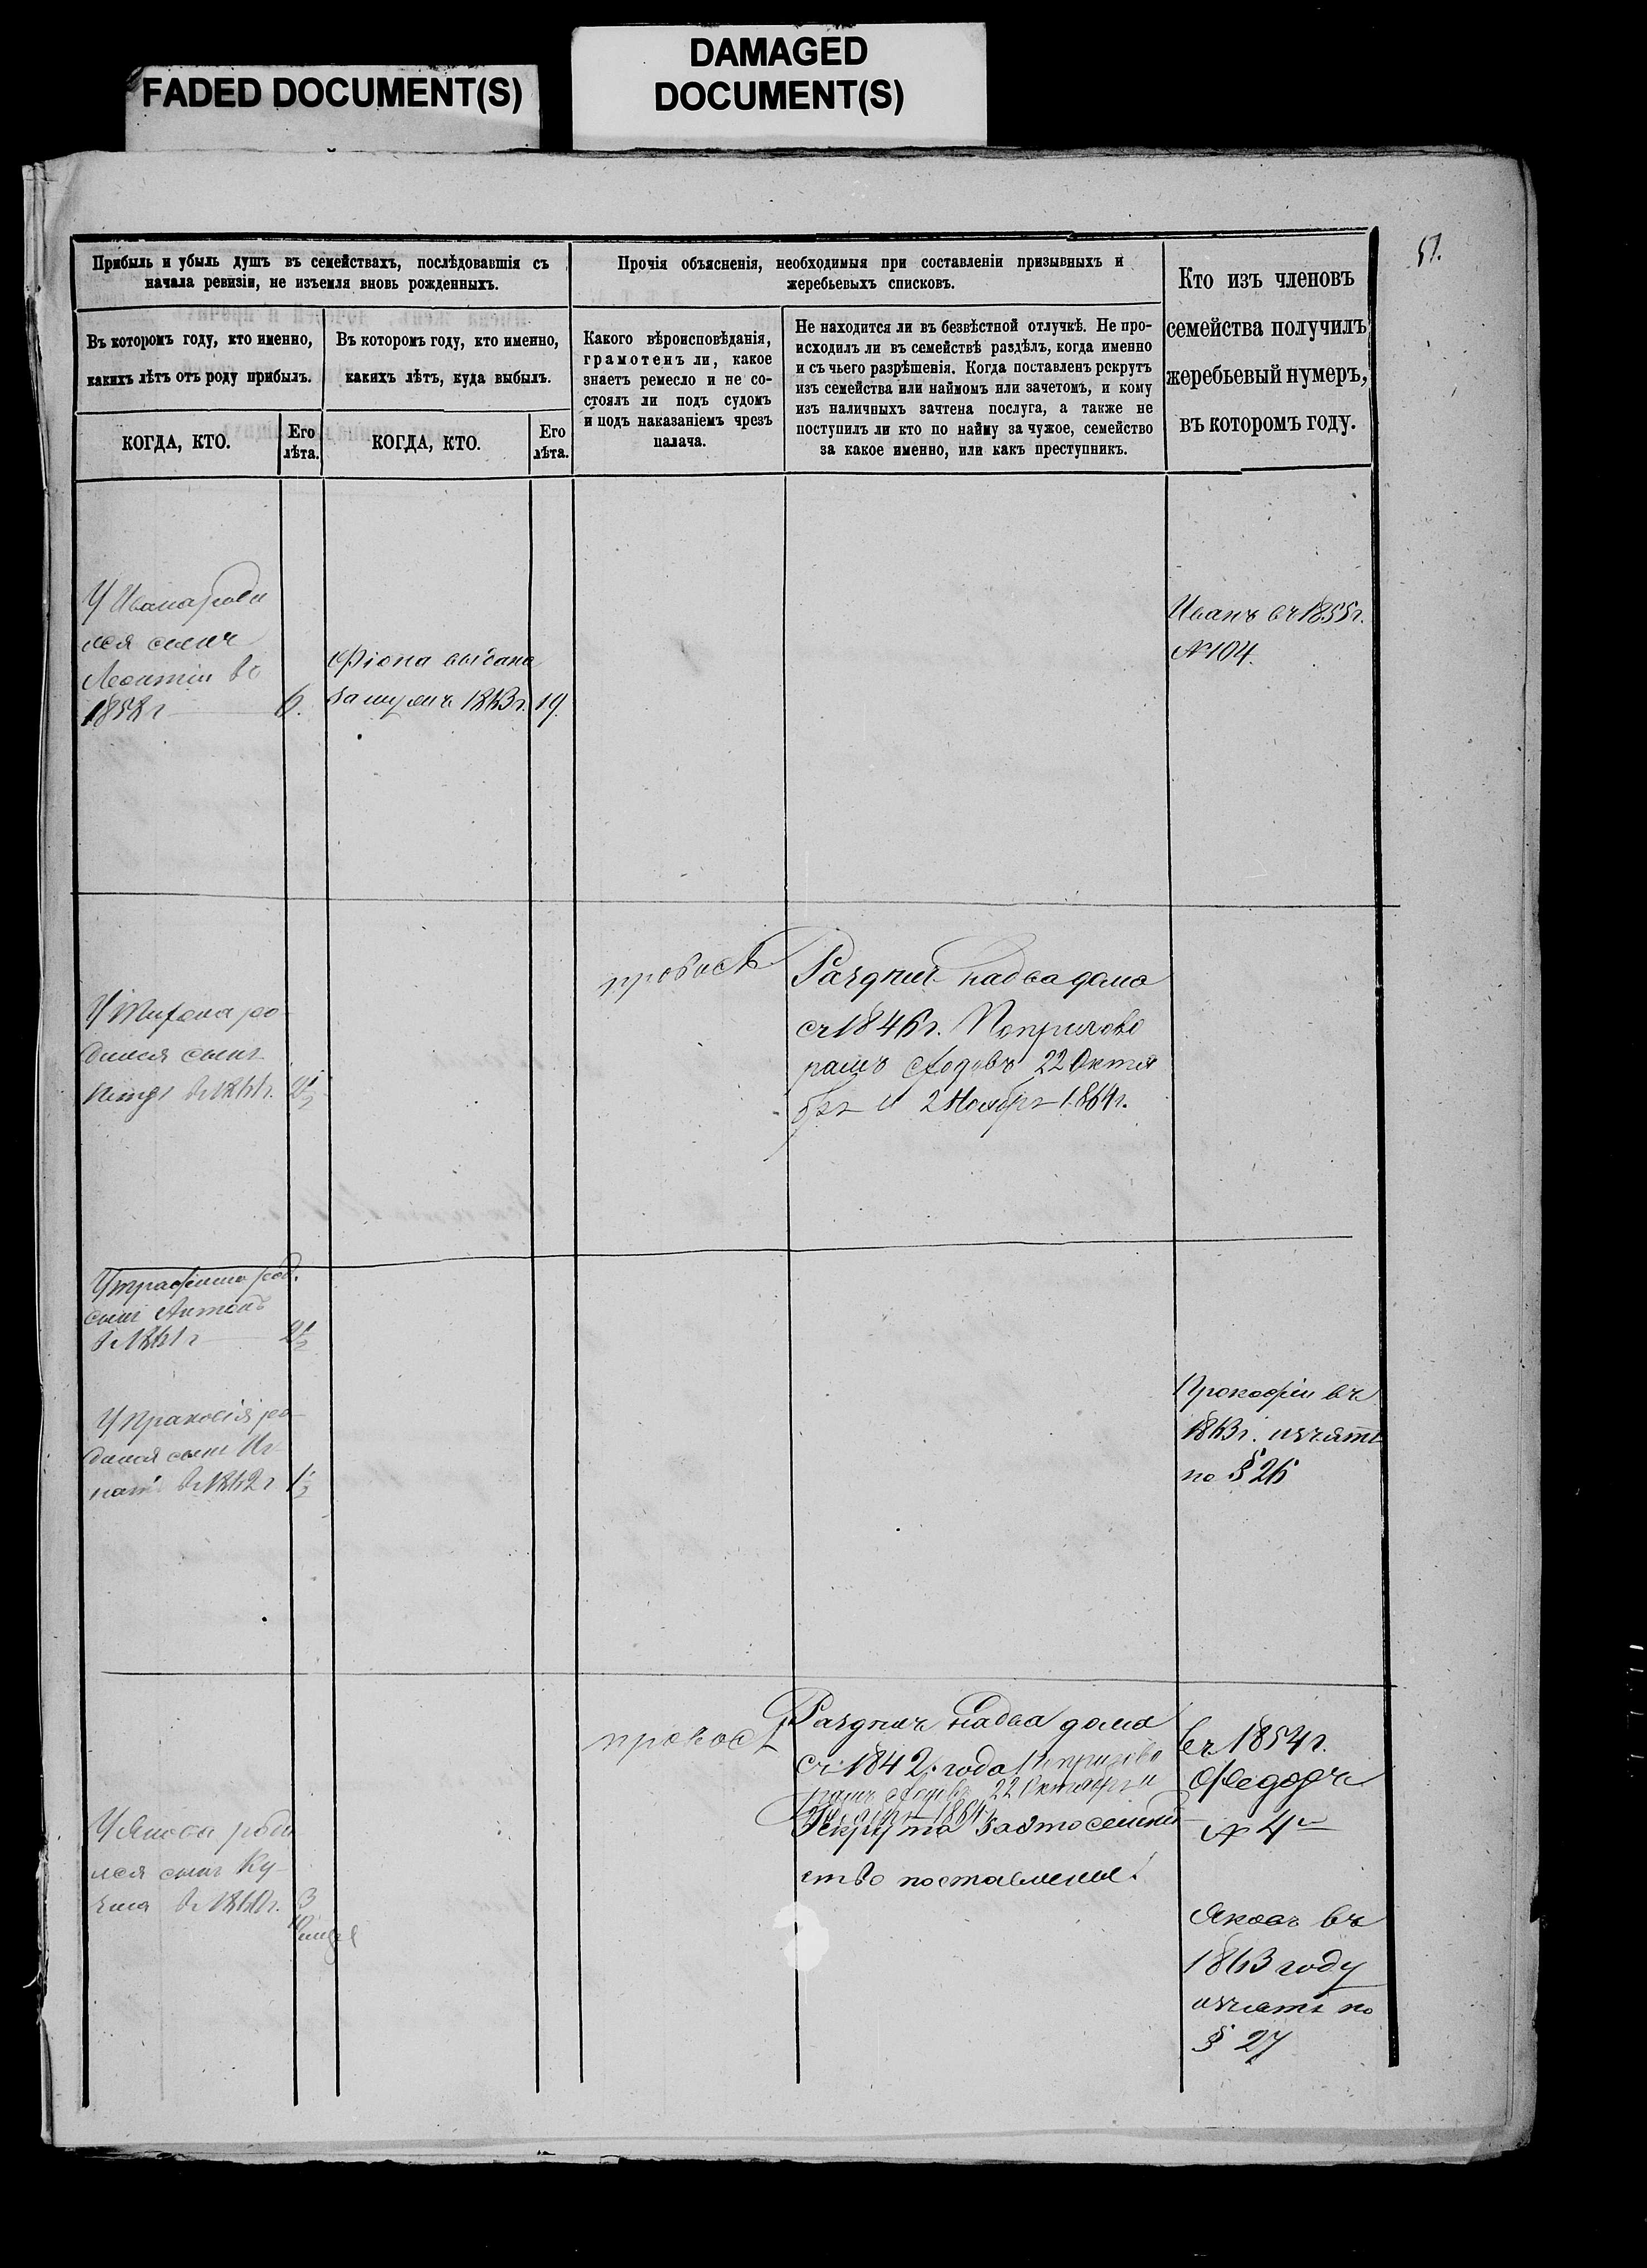 FADED DOCUMENT(S)
DAMAGED
DOCUMENT(S)
51.
Прибыль и убыль душъ въ семействахъ, послѣдовавшія съ
начала ревизіи, не изъемля вновь рожденныхъ.
Прочія объясненія, необходимыя при составленіи призывныхъ и
жеребьевыхъ списковъ.
Кто изъ членовъ
семейства получилъ
жеребьевый нумеръ,
въ которомъ году.
Въ которомъ году, кто именно,
какихъ лѣтъ отъ роду прибылъ.
Въ которомъ году, кто именно,
какихъ лѣтъ, куда выбылъ.
Какого вѣроисповѣданія,
грамотенъ ли, какое
знаетъ ремесло и не со-
стоялъ ли подъ судомъ
и подъ наказаніемъ чрезъ
палача.
Не находится ли въ безвѣстной отлучкѣ. Не про-
исходилъ ли въ семействѣ раздѣлъ, когда именно
и съ чьего разрѣшенія. Когда поставленъ рекрутъ
изъ семейства или наймомъ или зачетомъ, и кому
изъ наличныхъ зачтена послуга, а также не
поступилъ ли кто по найму за чужое, семейство
за какое именно, или какъ преступникъ.
КОГДА, КТО.
Его
лѣта.
КОГДА, КТО.
Его
лѣта.
У Ивана роди
лся сынъ
Леонтій въ
1858 г 6.
Фіона выдана
замужъ 1863 г. 19.
Иванъ въ 1855 г.
№ 104.
У ро
дился сынъ
Петръ въ 1861 г. 2½
правосл
на два дома
съ 1846 г. По пригово
рамъ 22 Октя
бря и 2 Ноября 1864 г.
У род.
сынъ Антонъ
въ 1861 г 2½
У ро
дился сынъ Иг
натій въ 1862 г 1½
Прокофій въ
1863 г. изъятъ
по § 26
правосл
на два дома
съ 1842 года По пригово
рамъ 22 Октября и
Ноября 1864
Рекрута за это семей
ство поставлено
въ 1854 г.
Федоръ
№ 4
У Якова роди
лся сынъ Ку
зма въ 1860 г. 3
Яковъ въ
1863 году
изъятъ по
§ 27